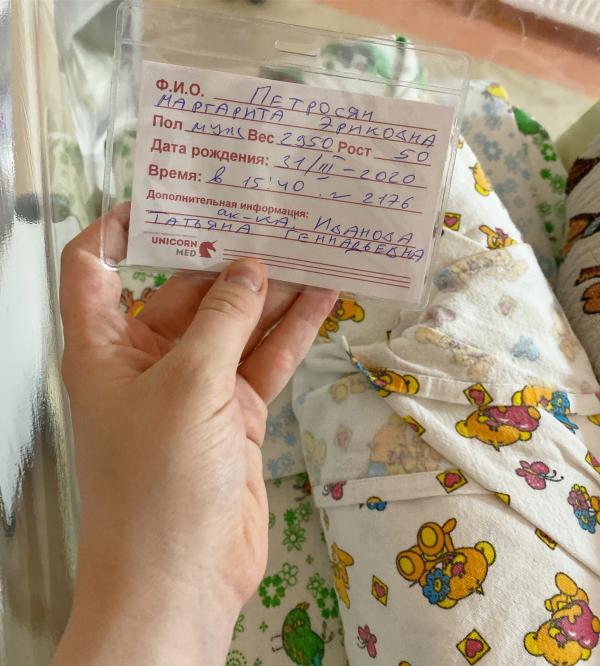 Ф.И.О. ПЕТРОСЯН
МАРГАРИТА ЭРИКОВНА
Пол муж Вес 2950 Рост 50
Дата рождения: 31/III-2020
Время: в 15'40 № 2176
Дополнительная информация:
ак-ка, ИВАНОВА
ТАТЬЯНА ГЕННАДЬЕВНА
UNICORN
MED